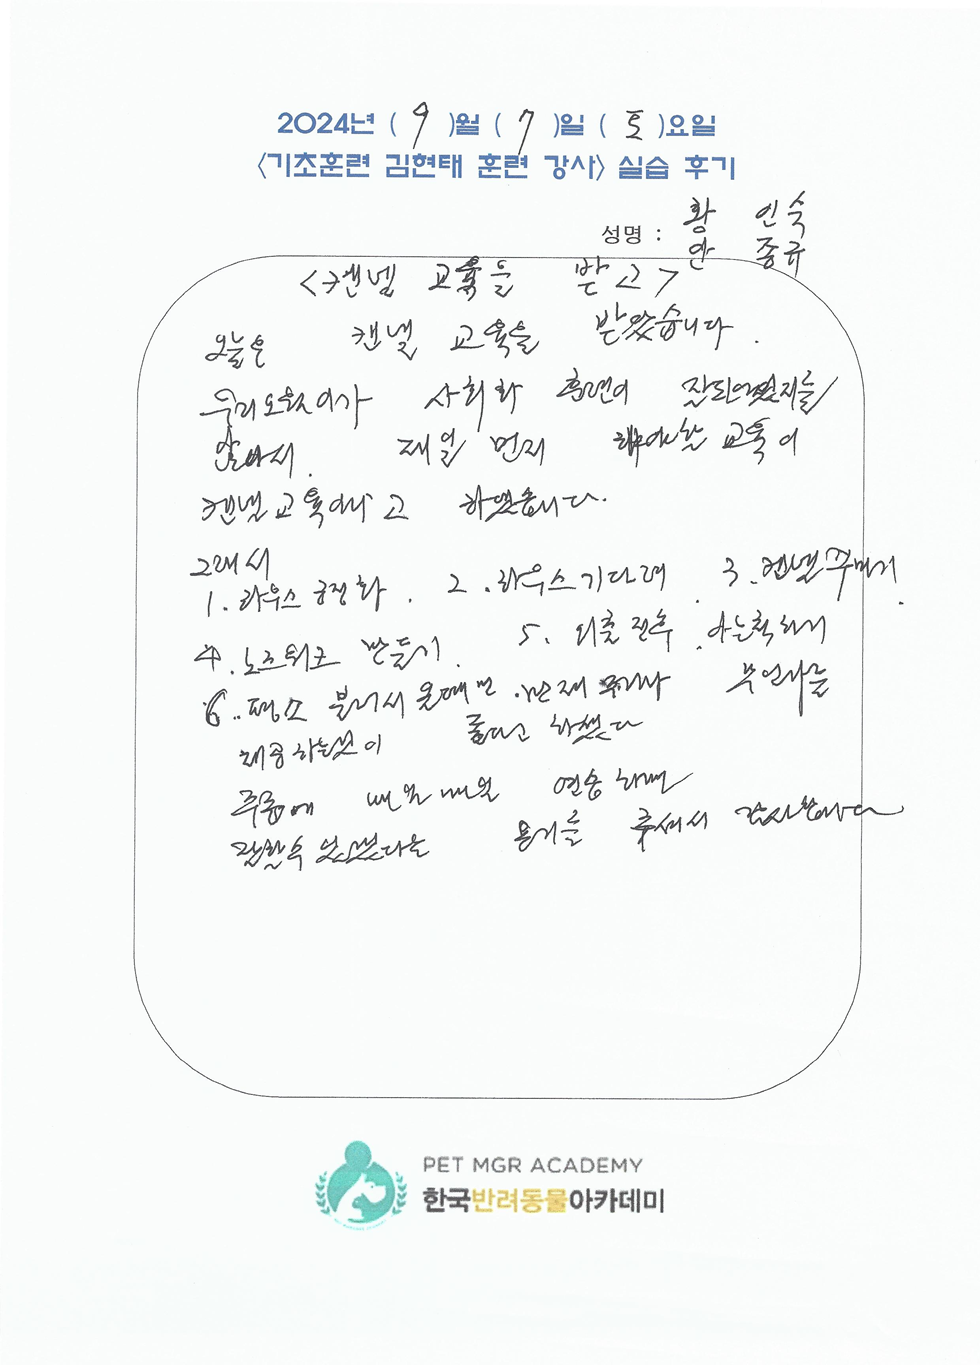 2024년 ( 9 )월 ( 7 )일 ( 토 )요일
<기초훈련 김현태 훈련 강사> 실습 후기
성명 : 황 인숙
안 종규
<캔넬 교육을 받고>
오늘은 캔넬 교육을 받았습니다.
우리 사회화 훈련이 잘되어있지를
않아서. 제일 먼저 해야할 교육이
캔넬교육이라고 하였습니다.
그래서
1. 하우스 긍정화. 2. 하우스 기다려. 3. 캔넬꾸미기.
4. 노즈워크 만들기. 5. 외출 전후. 아는척하기
6. 평소 불러서 올때면
제공하는것이 좋다고 하셨다
주중에 매일매일 연습하면
잘할수 있겠다는 용기를 주셔서 감사합니다
PET MGR ACADEMY
한국반려동물아카데미